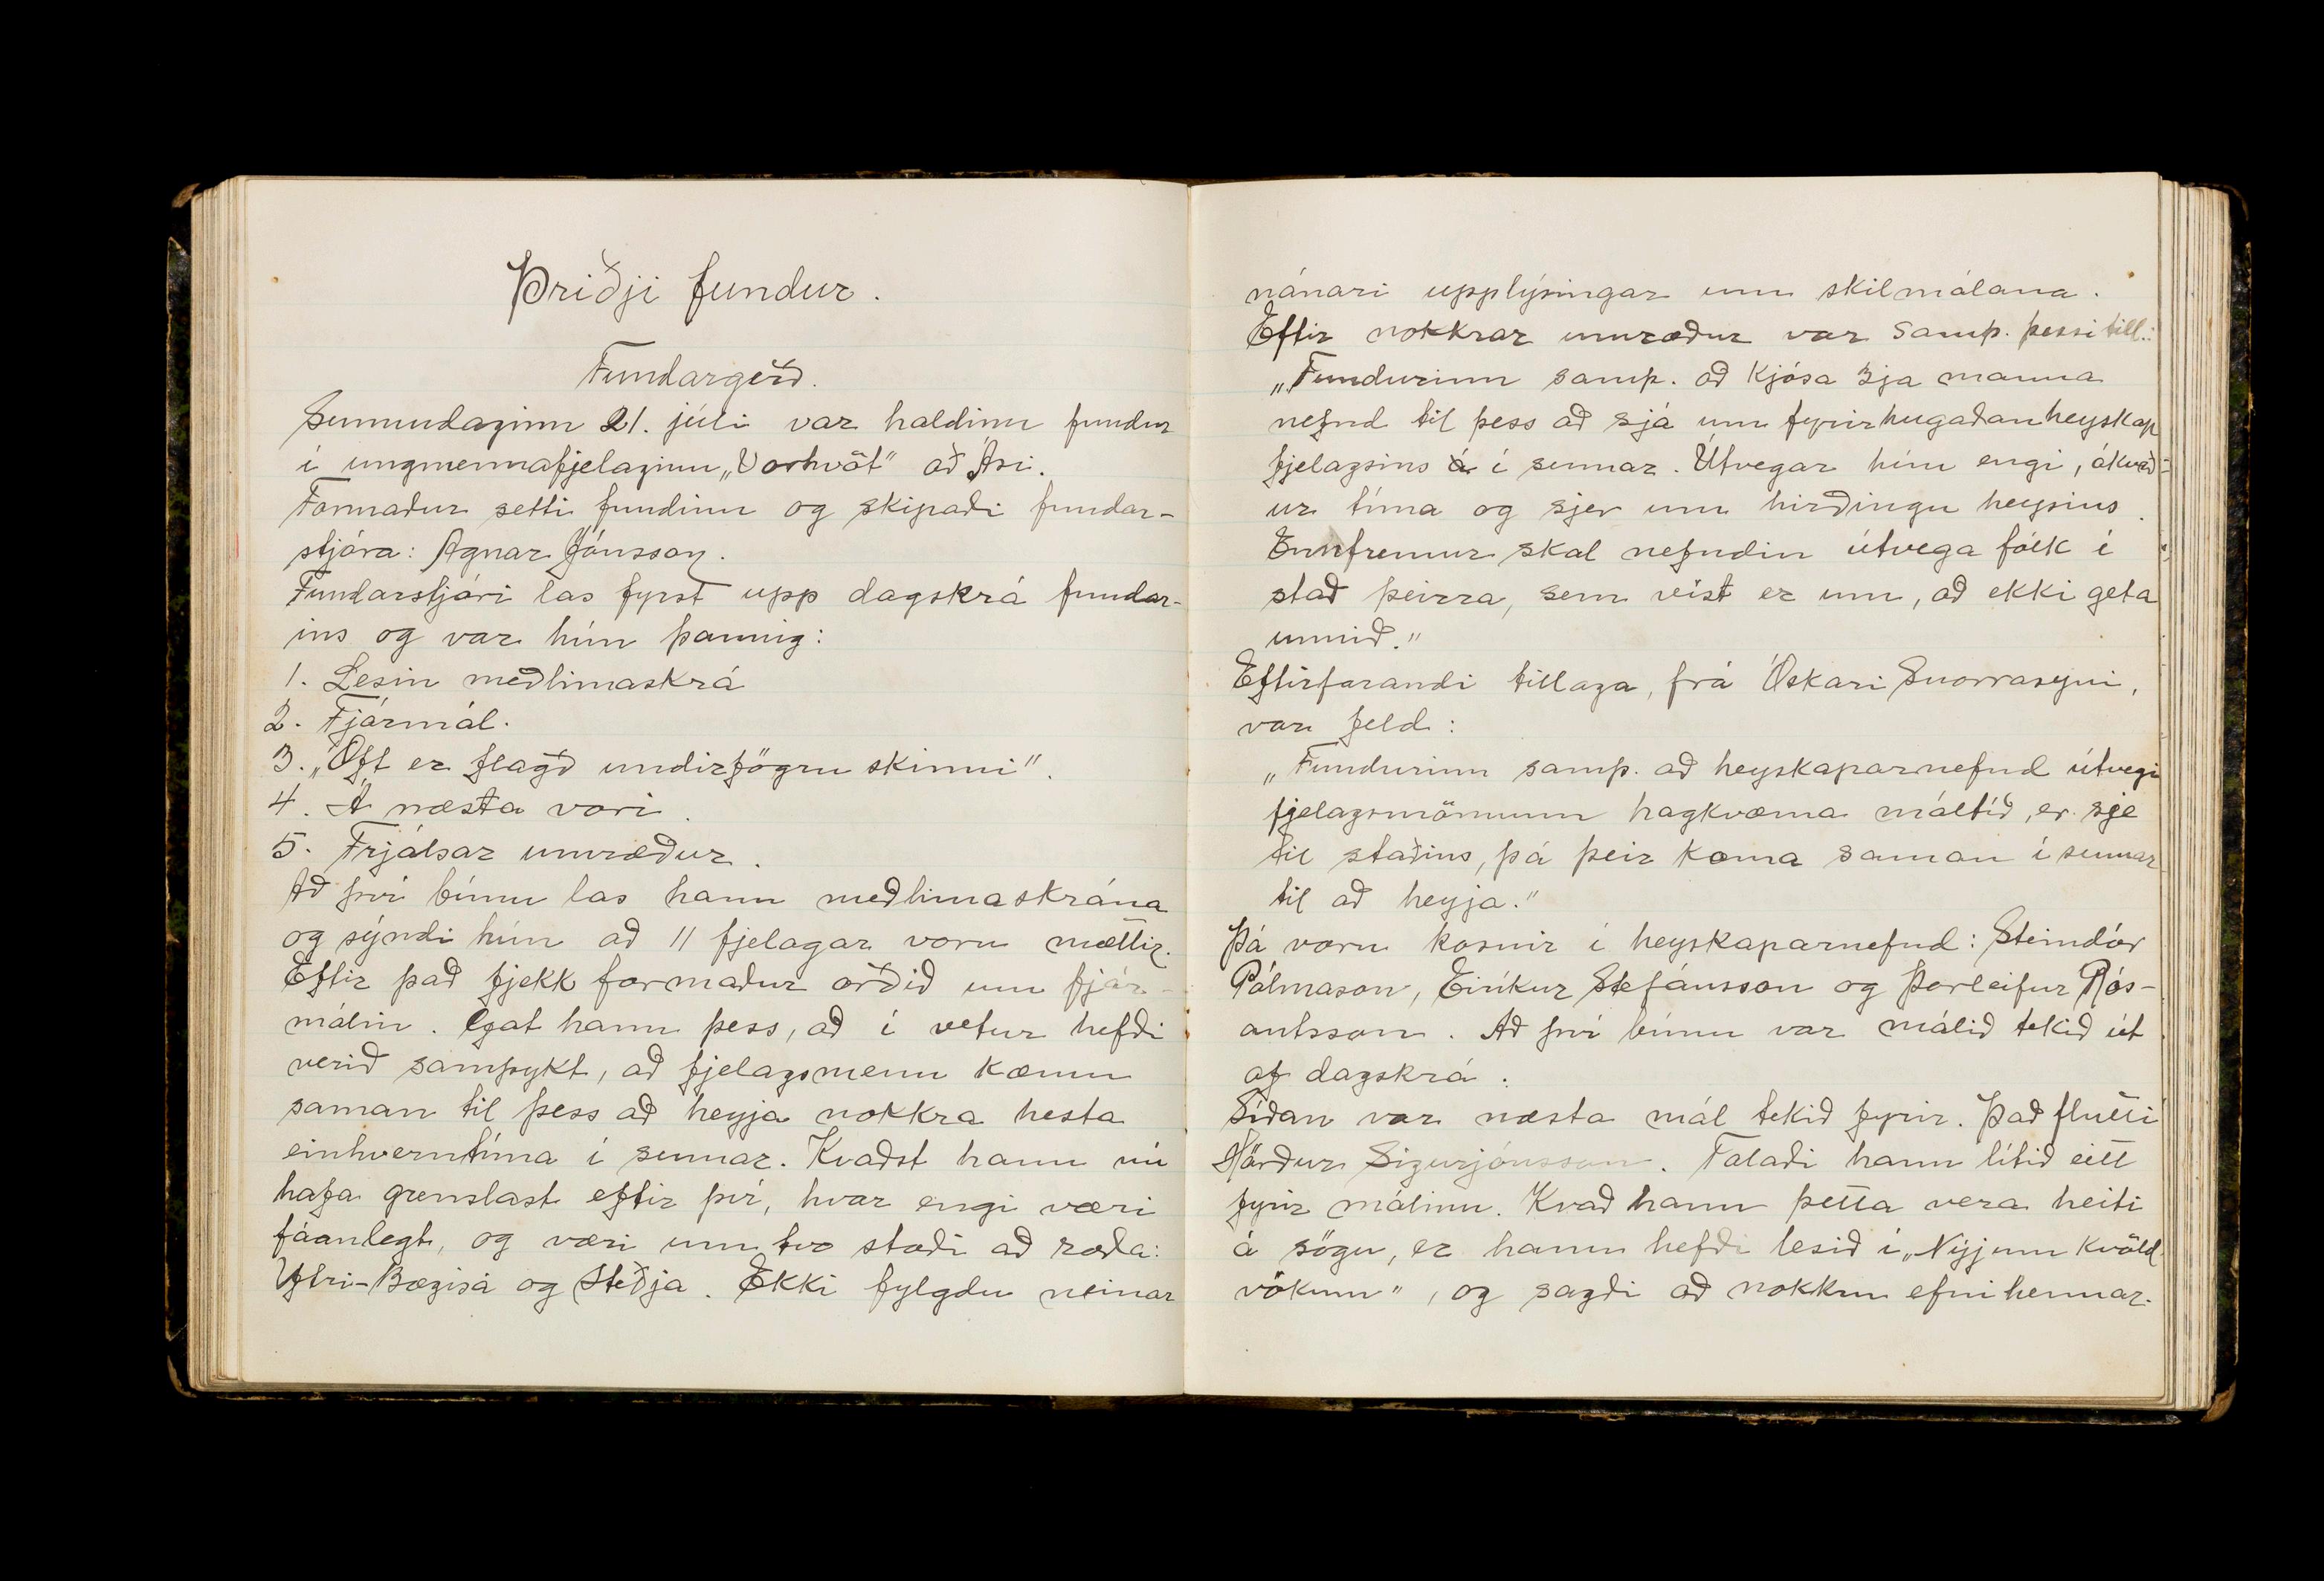 Þriðji fundur.
Fundargerð.
Sunnudaginn 21. júli var haldinn fundur
í ungmennafjelaginu „Vorhvöt" að Ási.
Formaður setti fundinn og skipaði fundar-
stjóra: Agnar Jónsson.
Fundarstjóri las fyrst upp dagskrá fundar-
ins og var hún þannig:
1. Lesin meðlimaskrá
2. Fjármál.
3. „Oft er flagð undir fögru skinni".
4. Á næsta vori.
5. Frjálsar umræður.
Að því búnu las hann meðlimaskrána
og sýndi hún að 11 fjelagar voru mættir.
Eftir það fjekk formaður orðið um fjár-
málin. Gat hann þess, að í vetur hefði
verið samþykt, að fjelagsmenn kæmu
saman til þess að heyja nokkra hesta
einhverntíma í sumar. Kvaðst hann nú
hafa grenslast eftir því, hvar engi væri
fáanlegt, og væri um tvo staði að ræða:
Ytri-Bægisá og Steðja. Ekki fylgdu neinar
nánari upplýsingar um skilmálana.
Eftir nokkrar umræður var samþ. þessi till.:
„Fundurinn samþ. að kjósa 3ja manna
nefnd til þess að sjá um fyrirhugaðan heyskap
fjelagsins á í sumar. Útvegar hún engi, ákveð-
ur tíma og sjer um hirðingu heysins.
Ennfremur skal nefndin útvega fólk í
stað þeirra, sem víst er um, að ekki geta
unnið."
Eftirfarandi tillaga, frá Óskari Snorrasyni,
var feld:
„Fundurinn samþ. að heyskaparnefnd útvegi
fjelagsmönnum hagkvæma máltíð, er sje
til staðins, þá þeir koma saman í sumar
til að heyja."
Þá voru kosnir í heyskaparnefnd: Steindór
Pálmason, Eiríkur Stefánsson og Þorleifur Rós-
antsson. Að því búnu var málið tekið út
af dagskrá.
Síðan var næsta mál tekið fyrir. Það flutti
Hörður Sigurjónsson. Talaði hann lítið eitt
fyrir málinu. Kvað hann þetta vera heiti
á sögu, er hann hefði lesið í „Nýjum kvöld
vökum", og sagði að nokkru efni hennar.